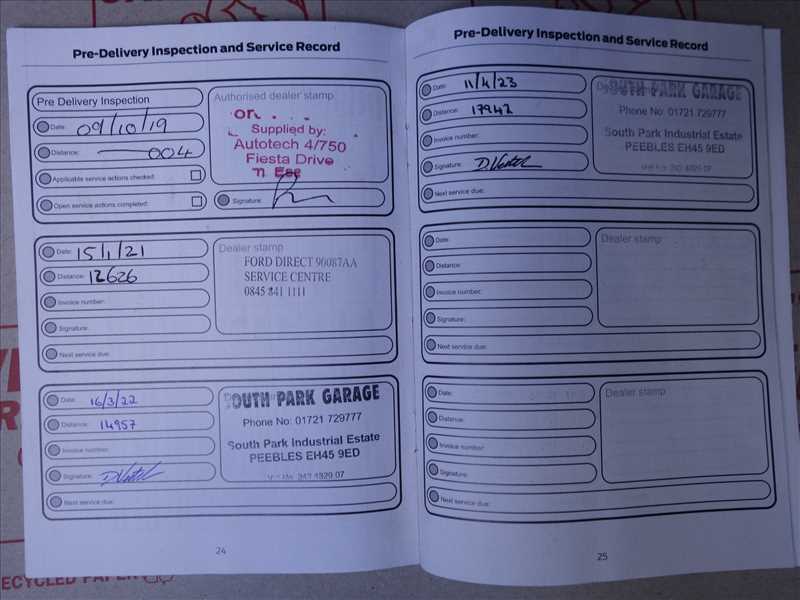 Pre-Delivery Inspection and Service Record
Pre Delivery Inspection
Date: 09/10/19
Distance: 004
Applicable service actions checked:
Open service actions completed:
Authorised dealer stamp
Supplied by:
Autotech 4/750
Fiesta Drive
Signature:
Date: 15/1/21
Distance: 12626
Invoice number:
Signature:
Next service due:
Dealer stamp
FORD DIRECT 90087AA
SERVICE CENTRE
0845 841 1111
Date: 16/3/22
Distance: 14957
Invoice number:
Signature:
Next service due:
SOUTH PARK GARAGE
Phone No: 01721 729777
South Park Industrial Estate
PEEBLES EH45 9ED
24
Pre-Delivery Inspection and Service Record
Date: 11/4/23
Distance: 17942
Invoice number:
Signature:
Next service due:
SOUTH PARK GARAGE
Phone No: 01721 729777
South Park Industrial Estate
PEEBLES EH45 9ED
Date:
Distance:
Invoice number:
Signature:
Next service due:
Dealer stamp
Date:
Distance:
Invoice number:
Signature:
Next service due:
Dealer stamp
25
RECYCLED PAPER